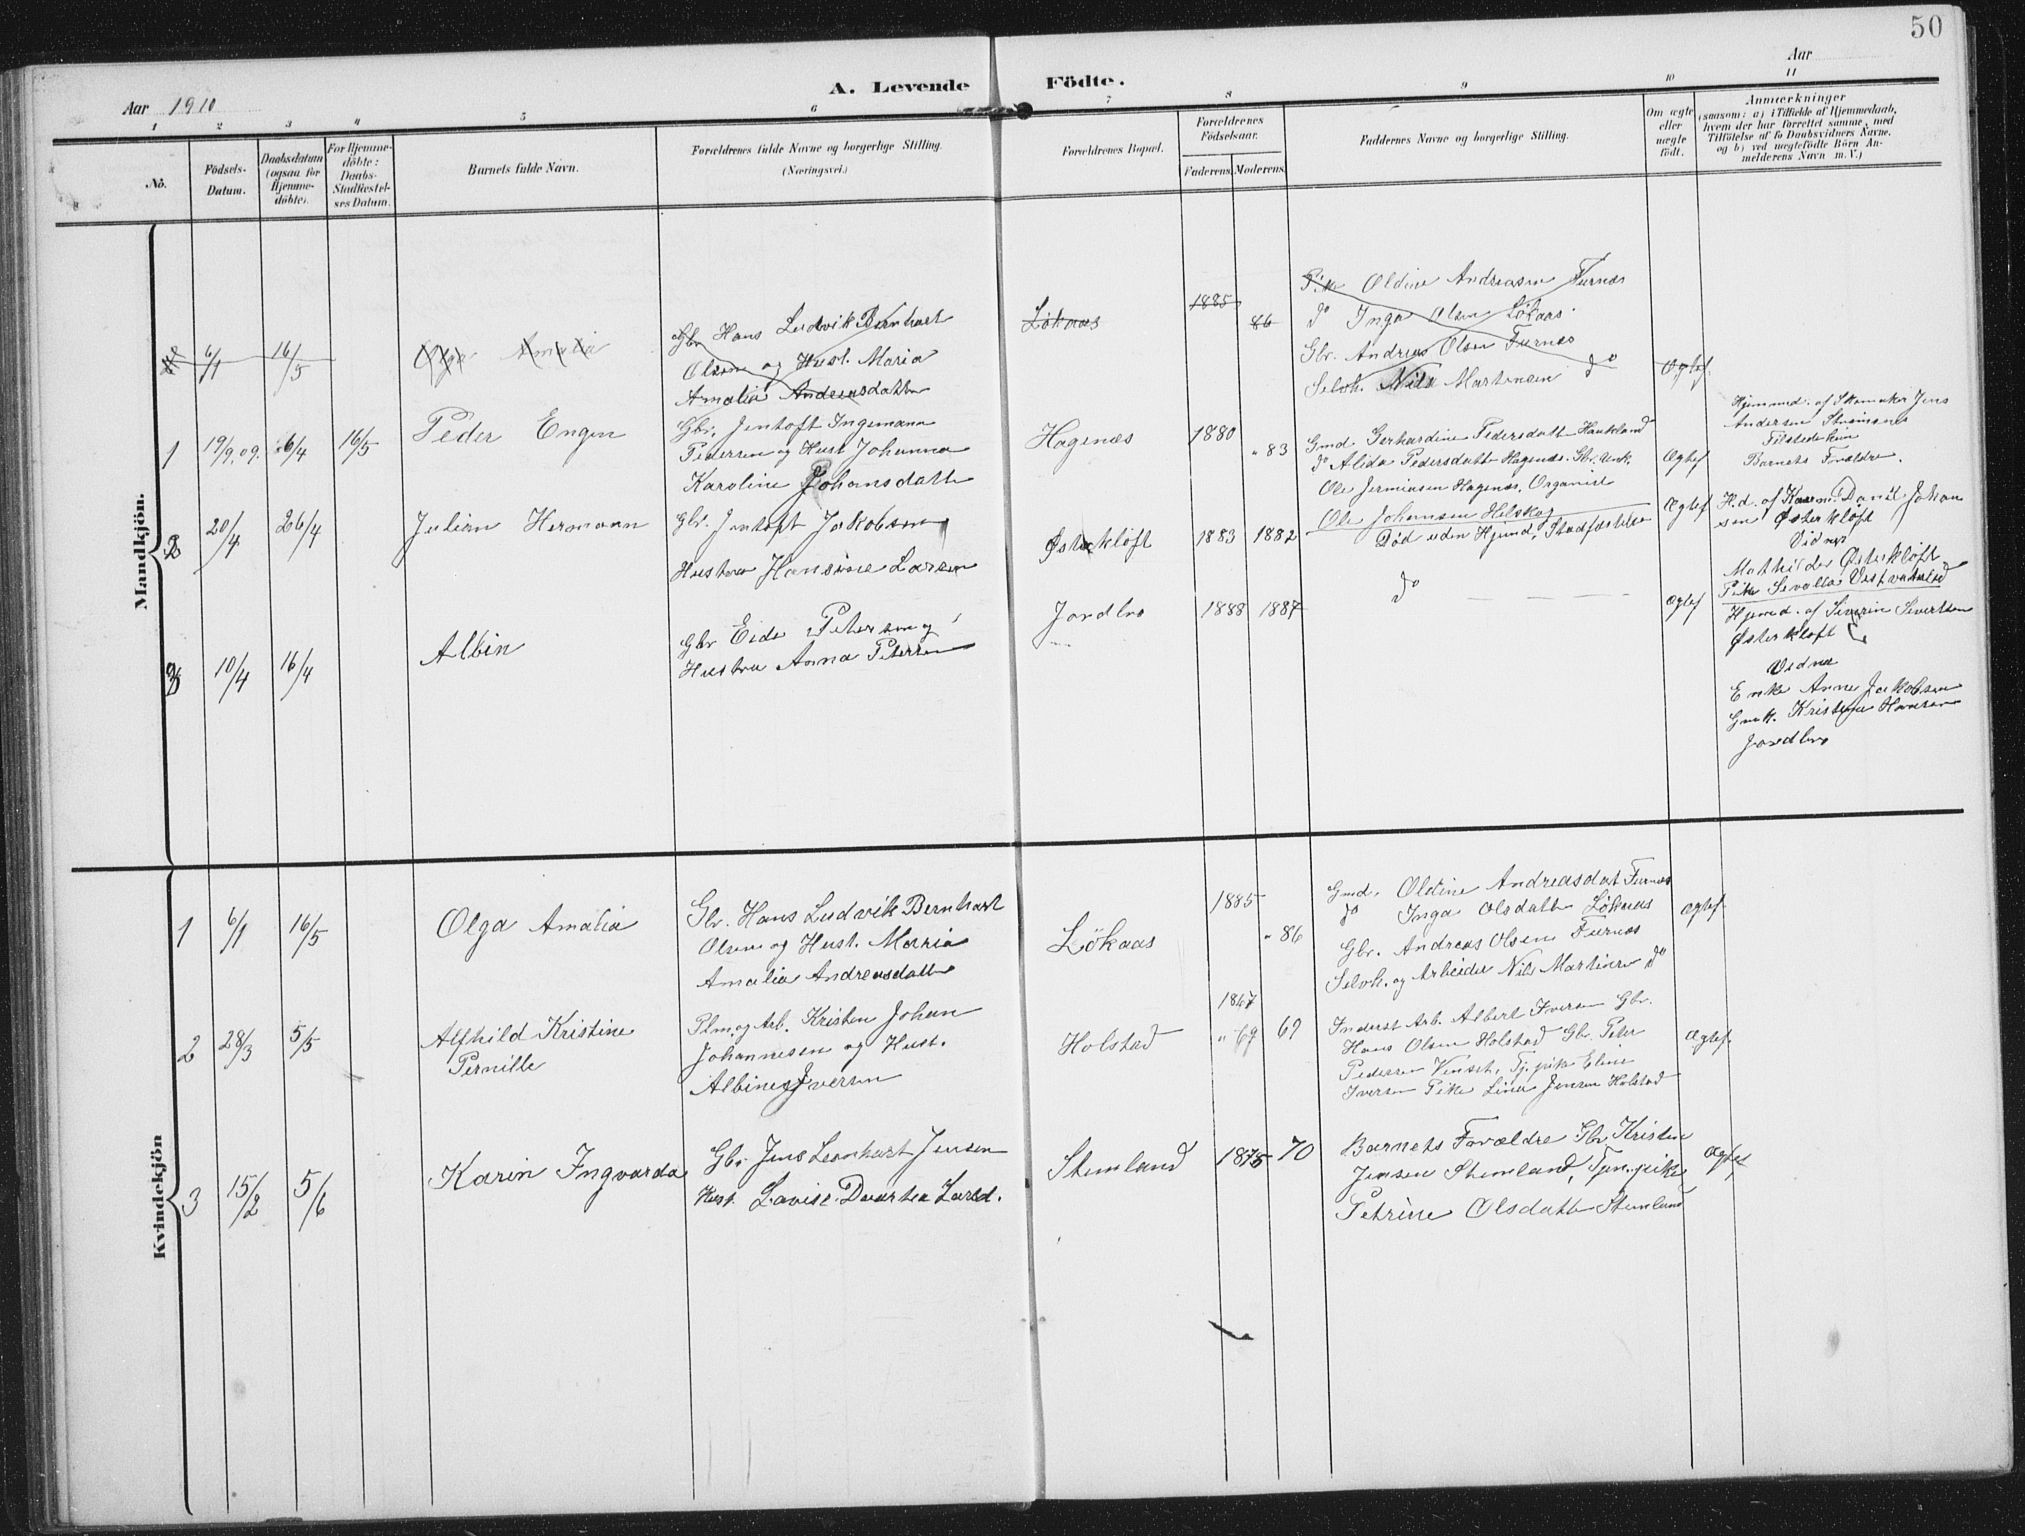 50
A. Levende Födte.
Aar 1910
Aar
1 2 3 4 5 6 7 8 9 10 11
No.
Födsels-
Datum.
Daabsdatum
(ogsaa for
Hjemme-
döbte).
For Hjemme-
döbte:
Daabs-
Stadfæstel-
ses Datum.
Barnets fulde Navn.
Forældrenes fulde Navne og borgerlige Stilling.
(Næringsvei.)
Forældrenes Bopæl.
Forældrenes
Födselsaar.
Faderens. Moderens.
Faddernes Navne og borgerlige Stilling.
Om ægte
eller
uægte
födt.
Anmærkninger
(saasom: a) i Tilfælde af Hjemmedaab,
hvem der har forrettet samme, med
Tilföielse af to Daabsvidners Navne.
og b) ved uægtefödte Börn An-
melderens Navn m. V.)
Mandkjön.
6/1 16/5 Olga Amalia
Gbr Hans Ludvik Bernhart
Olsen og Hust. Maria
Amalia Andreasdatter
Lökaas
1885
86
Pike Oldine Andreasen Furnes
do Inga Olsen Lökaas
Gbr. Andreas Olsen Furnes
Selvh. Nils Martensen do
Ægtef.
1 19/9.09. 6/4 16/5 Peder Engen
Gbr. Jentoft Ingemann
Pedersen og Hust Johanna
Karoline Johansdatt
Hagenæs
1880
" 83
Gmd. Gerhardine Pedersdatt Haukland
do Alida Pedersdatt Hagenæs. Gbr. Unk.
Ole Jermiasen Hagenæs, Organist
Ole Johansen Helskog
Ægtef
Hjemmed. af Skomaker Jens
Andersen Strömsnes
Tilstede kun
Barnets Forældre.
2 20/4 26/4 Julian Hermann
Gbr. Jentoft Jakobsen
Hustru Hansine Larsen
Österklöft
1883 1882
Död uden Hjmd. Stadfæstelse
Ægtef
H.d. af Kaarm. Danil Johan
sen Österklöft
Vidner
Mathilde Österklöft
Pike Sevalda Vestvatnlid
3 10/4 16/4 Albin
Gbr Eide Petersen og
Hustru Anna Petersen
Jordbro
1888 1887
do
Ægtef
Hjemd. af Severin Sivertsen
Österklöft
Vidne
Enke Anne Jakobsen
Gmk. Kristine Hansen
Jordbro
Kvindekjön
1 6/1 16/5 Olga Amalia
Gbr. Hans Ludvik Bernhart
Olsen og Hust. Maria
Amalia Andreasdatt
Lökaas
1885
" 86
Gmd. Oldine Andreasdat Furnes
do Inga Olsdatt Lökaas
Gbr. Andreas Olsen Furnes
Selvh. og Arbeider Nils Martinsen do
Ægtef.
2 28/3 5/5 Alfhild Kristine
Pernille
Plm. og Arb. Kristen Johan
Johannesen og Hust.
Albine Iversen
Holstad
1867
" 69 69
Inderst Arb. Albert Iversen Gbr.
Hans Olsen Holstad Gbr. Peter
Pedersen Venset, Tj. pike Eline
Iversen Pike Lina Jensen Holstad
Ægtef.
3 15/2 5/6 Karin Ingvarda
Gbr. Jens Leonhart Jensen
Hust. Lovise Dorthea Larsd.
Stemland
1875 70
Barnets Forældre Gbr Kristen
Jensen Stemland, Tjen. pike
Petrine Olsdatt Stemland
Ægtef